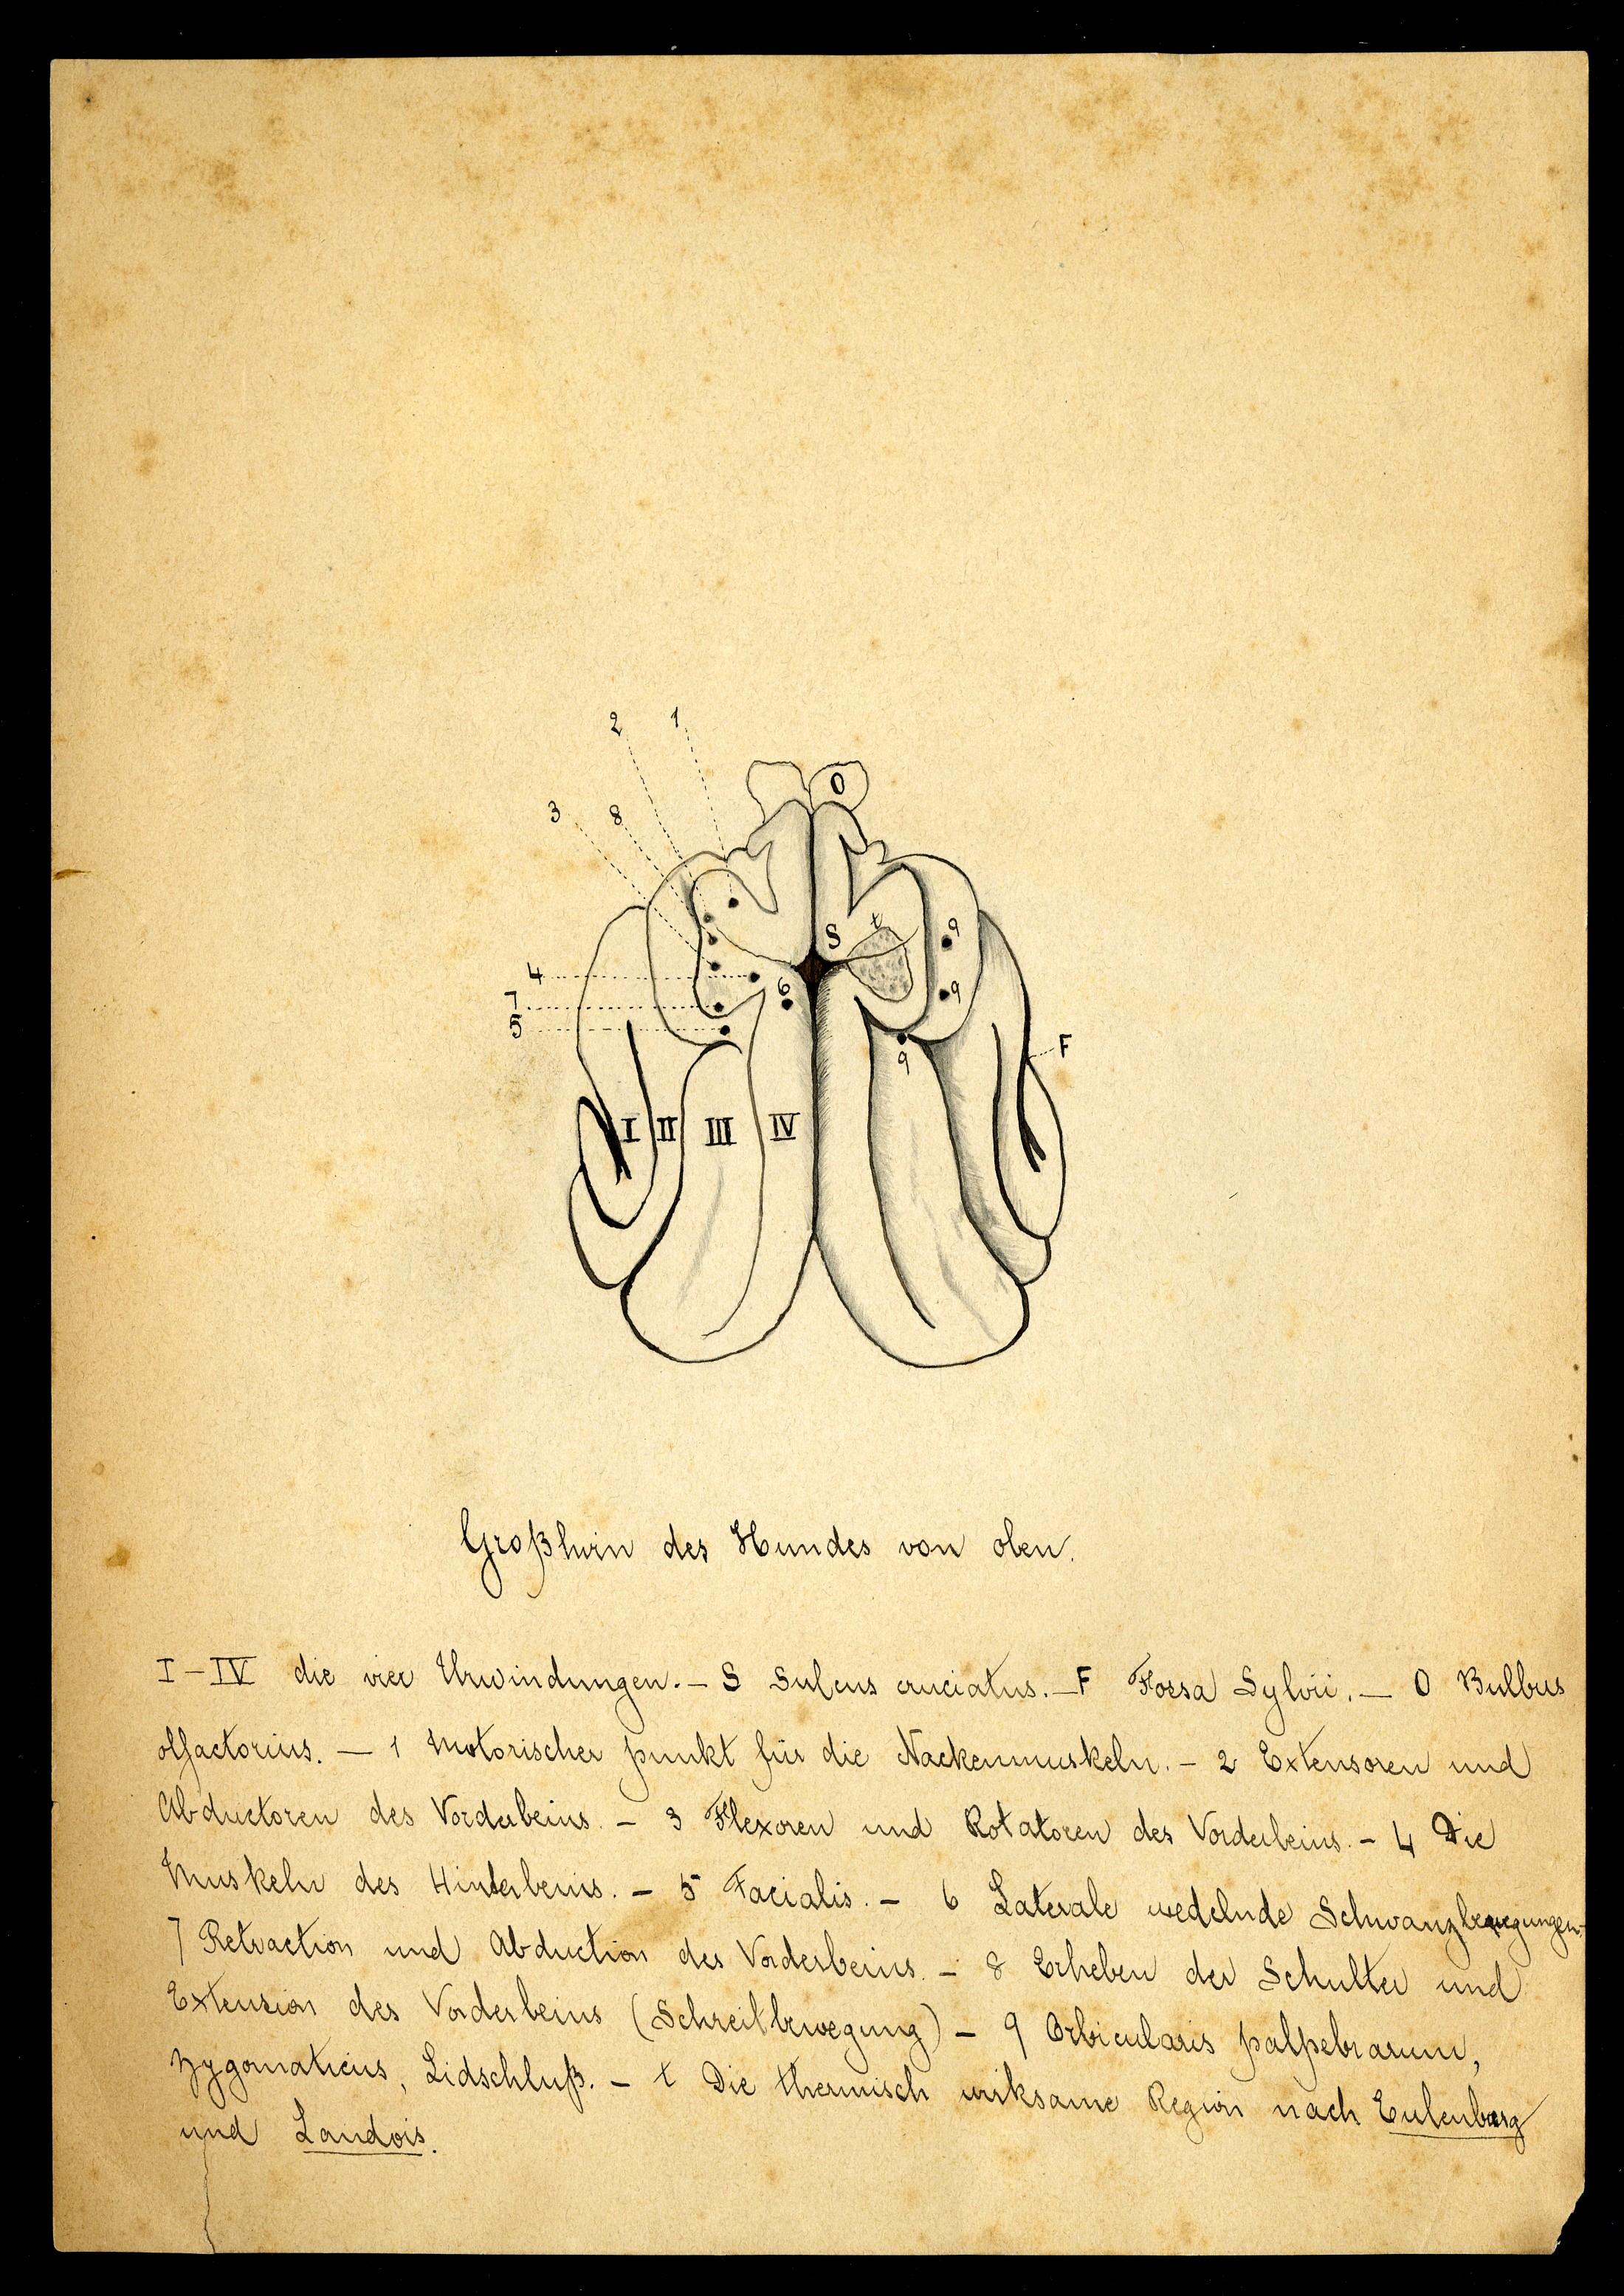 2 1
O
3 8
S t 9
4
6
7 9
5
F
9
I II III IV
Großhirn des Hundes von oben.
I–IV die vier Urwindungen. – S Sulcus cruciatus. – F Fossa Sylvii. – O Bulbus
olfactorius. – 1 Motorischer punkt für die Nackenmuskeln. – 2 Extensoren und
Abductoren des Vorderbeins. – 3 Flexoren und Rotatoren des Vorderbeins. – 4 Die
Muskeln des Hinterbeins. – 5 Facialis. – 6 Laterale wedelnde Schwanzbewegungen.
7 Retraction und Abduction des Vorderbeins. – 8 Erheben der Schulter und
Extension des Vorderbeins (Schreitbewegung) – 9 Orbicularis palpebrarum,
Zygomaticus, Lidschluß. – t Die thermisch wirksame Region nach Eulenburg
und Landois.